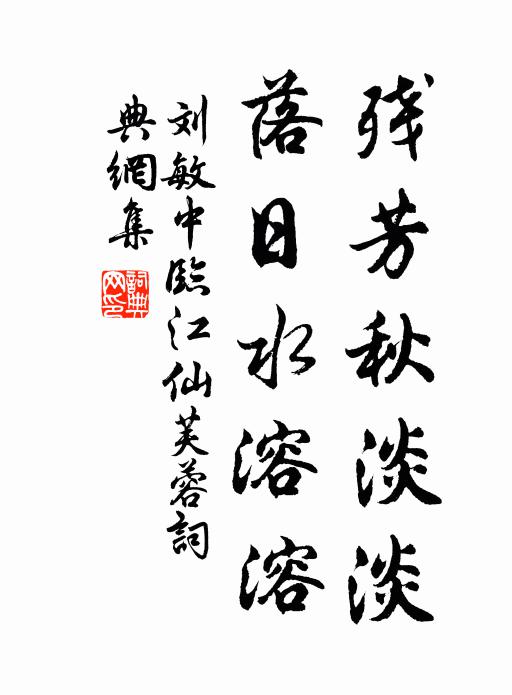 残芳秋淡淡
落日水溶溶
刘敏中臨江仙芙蓉詞
典網集
詞典網印